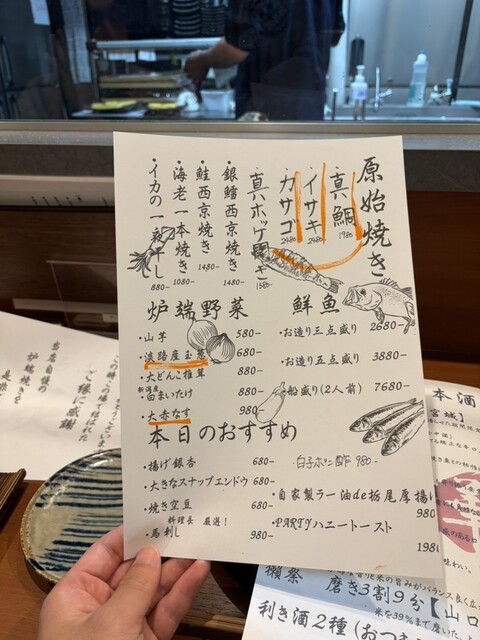 原始焼き
真鯛
1980-
イサキ
2480-
カサゴ
2480-
真ホッケ開き
1580-
・銀鱈西京焼き
1480-
・鮭西京焼き
1480-
・海老一本焼き
1080-
・イカの一夜干し
880-
炉端野菜
・山芋 580-
・淡路産玉葱 680-
・大どんこ椎茸 880-
新潟産
・白まいたけ 880-
・大赤なす 980-
鮮魚
・お造り三点盛り 2680-
・お造り五点盛り 3880-
船盛り(2人前) 7680-
本日のおすすめ
・揚げ銀杏 680-
・大きなスナップエンドウ 680-
・焼き空豆 680-
料理長 厳選!
・馬刺し 980-
・白子ポン酢 980-
・自家製ラー油de栃尾厚揚げ
980
・PARTYハニートースト
1980
当店自慢の
炉端焼きを
ご縁に感謝
本酒
宮城】
獺祭 磨き3割9分【山口
米を39%まで磨いた、
利き酒2種(おつ